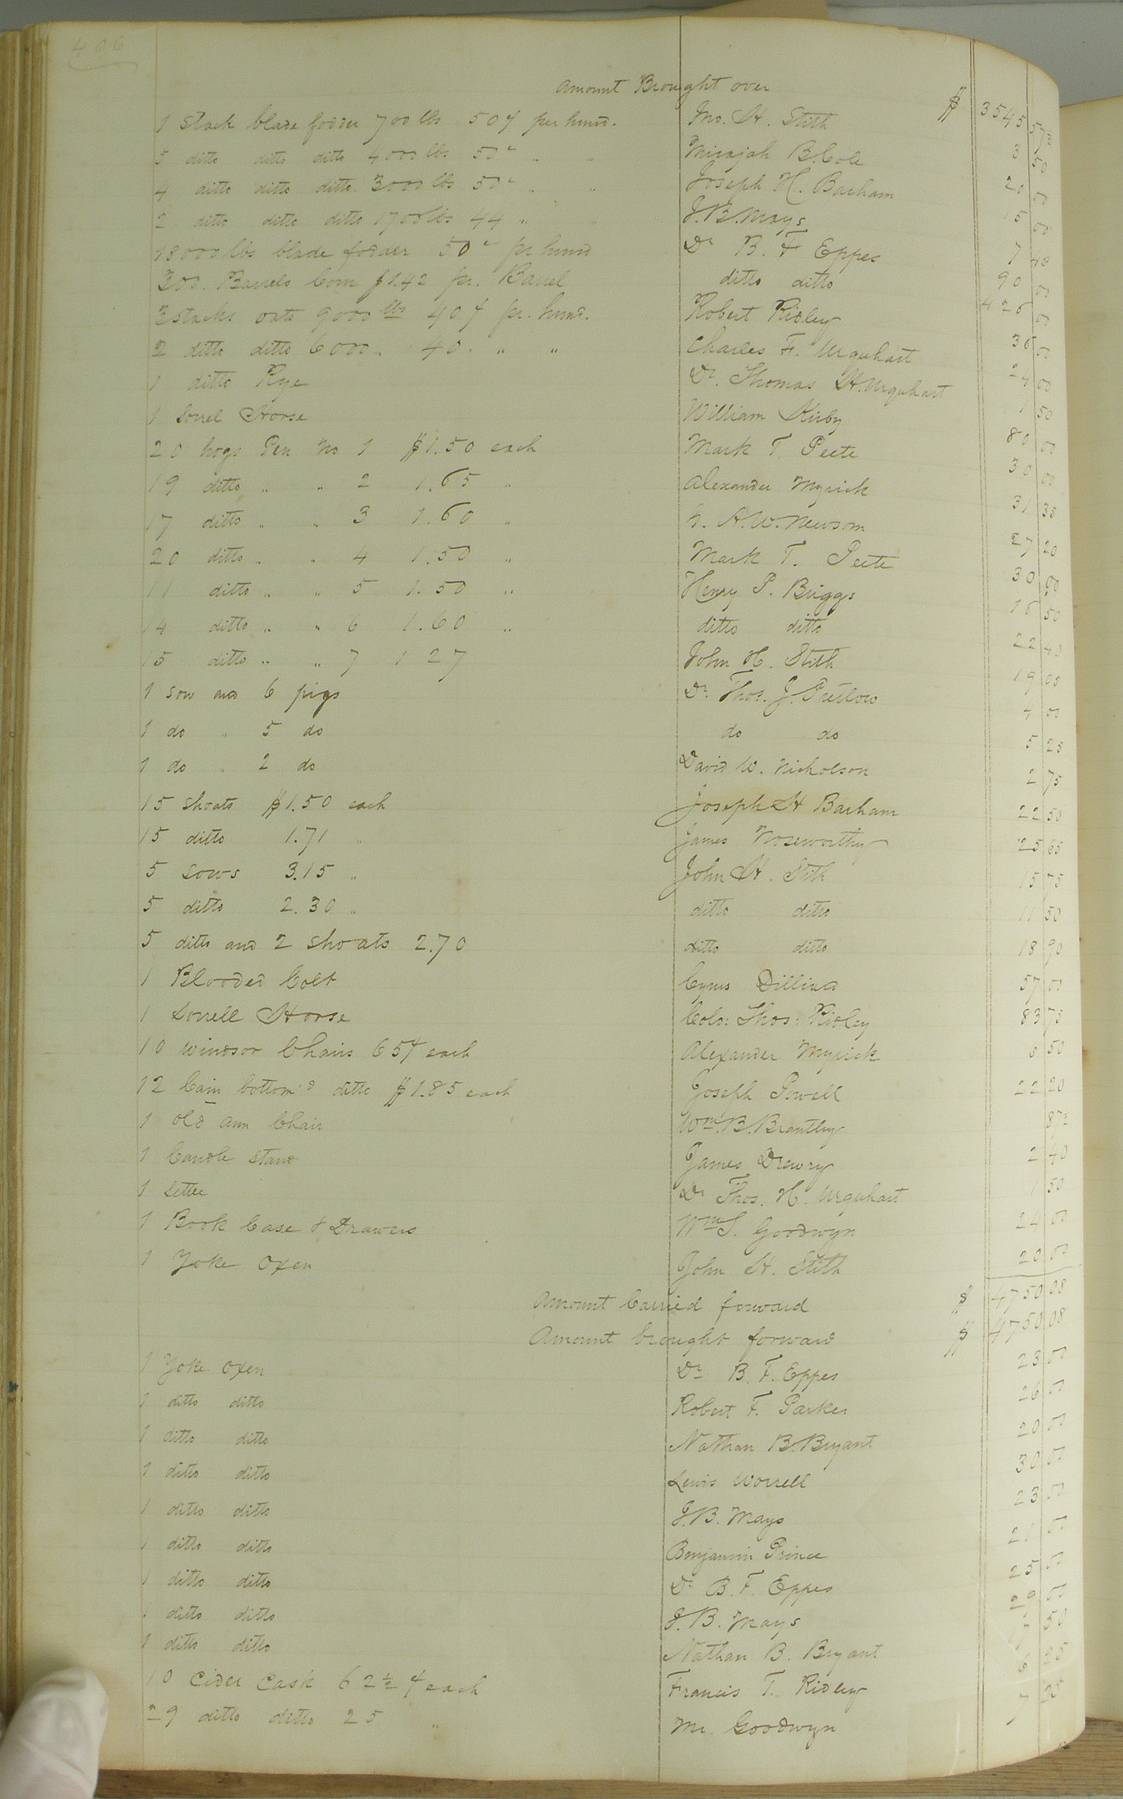 406
Amount Brought over $ 3545
1 Stack blade fodder 700 lbs 50¢ per hund. Jno. H. Stith 3 50
5 ditto ditto ditto 4000 lbs 50" " " Micajah B. Cole 20 00
4 ditto ditto ditto 3000 lbs 50" " " Joseph H. Barham 15 00
2 ditto ditto ditto 1700 lbs 44 " " J. B. Mays 7
18000 lbs blade fodder 50" pr hund Dr B. F Eppes 90 00
300. Barrels Corn $1.42 pr. Barrel ditto ditto 426 00
3 stacks oats 9000 lbs 40¢ pr. hund. Robert Ridley 36 00
2 ditto ditto 6000 " 40. " " Charles F. Urquhart 24 00
1 ditto Rye Dr. Thomas H. Urquhart 1 50
1 Sorrel Horse William Kirby 80 00
20 hogs Pen No 1 $1.50 each Mark T. Peete 30 00
19 ditto " " 2 1.65 " Alexander Myrick 31 35
17 ditto " " 3 1.60 " A. W. Newsom 27 20
20 ditto " " 4 1.50 " Mark T. Peete 30 00
11 ditto " " 5 1.50 " Henry P. Briggs 16 50
14 ditto " " 6 1.60 " ditto ditto 22 40
15 ditto " " 7 1 27 John H. Stith 19 05
1 sow and 6 pigs Dr. Thos. J. Pretlow 4 00
1 do " 5 do do do 5 25
1 do " 2 do David W. Nicholson 2 75
15 shoats $1.50 each Joseph H Barham 22 50
15 ditto 1.71 " James Noseworthy 25 65
5 Sows 3.15 " John H. Stith 15 75
5 ditto 2.30 " ditto ditto 11 50
5 ditto and 2 shoats 2.70 ditto ditto 18 90
1 Blooded Colt Cyrus Dillard 57 00
1 Sorrell Horse Colo: Thos: Ridley 83 75
10 Windsor Chairs 65¢ each Alexander Myrick 6 50
12 Cain bottom'd ditto $1.85 each Joseph Powell 22 20
1 old arm Chair Wm. B. Brantley 87½
1 Candle Stand James Drewry 2 40
1 Settee Dr Thos. H. Urquhart 1 50
1 Book Case & Drawers Wm S. Goodwyn 24 00
1 Yoke Oxen John H. Stith 20 00
Amount Carried forward $ 4750 08
Amount brought forward $ 4750 08
1 Yoke Oxen Dr B. F. Eppes 23 00
1 ditto ditto Robert F. Parker 26 00
1 ditto ditto Nathan B. Bryant 20 00
1 ditto ditto Lewis Worrell 30 00
1 ditto ditto J. B. Mays 23 00
1 ditto ditto Benjamin Prince 21 00
1 ditto ditto Dr B. F. Eppes 25 00
1 ditto ditto J. B. Mays 29 00
1 ditto ditto Nathan B. Bryant 50
10 Cider Cask 62½¢ each Francis T. Ridley 6 25
29 ditto ditto 25 " Mr. Goodwyn 7 25